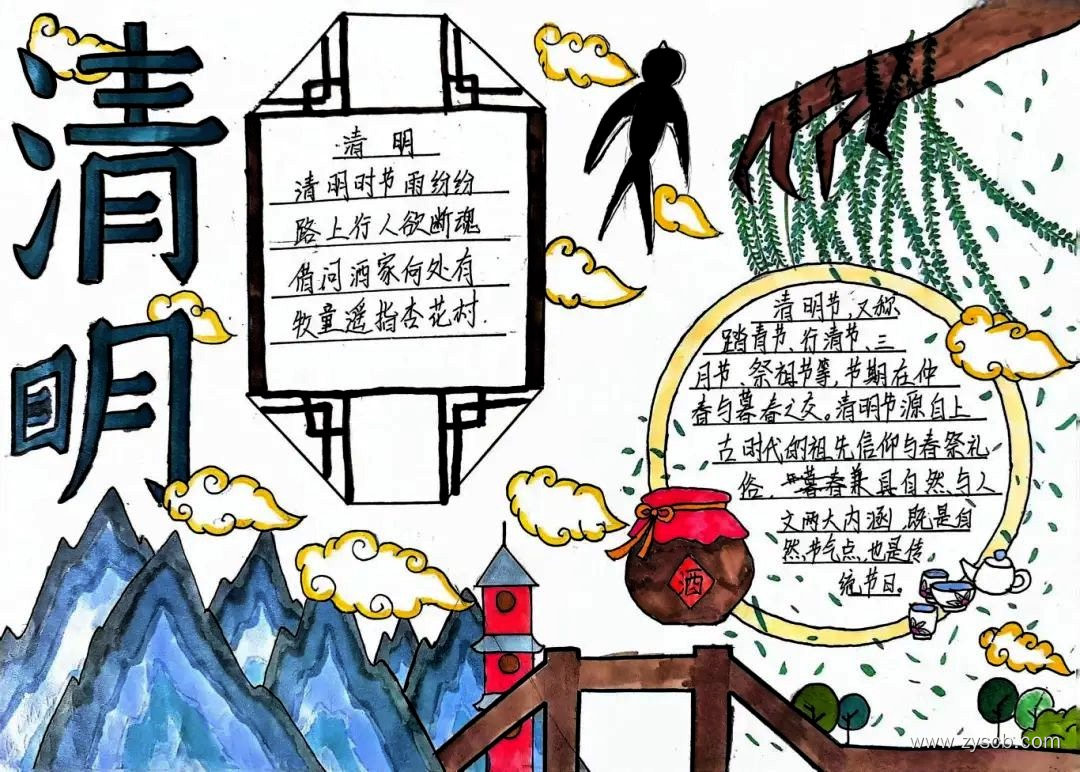 清明
清 明
清明时节雨纷纷
路上行人欲断魂
借问酒家何处有
牧童遥指杏花村.
清明节,又称
踏青节、行清节、三
月节、祭祖节等,节期在仲
春与暮春之交。清明节源自上
古时代的祖先信仰与春祭礼
俗,兼具自然与人
文两大内涵,既是自
然节气点,也是传
统节日。
酒
www.zyscb.com